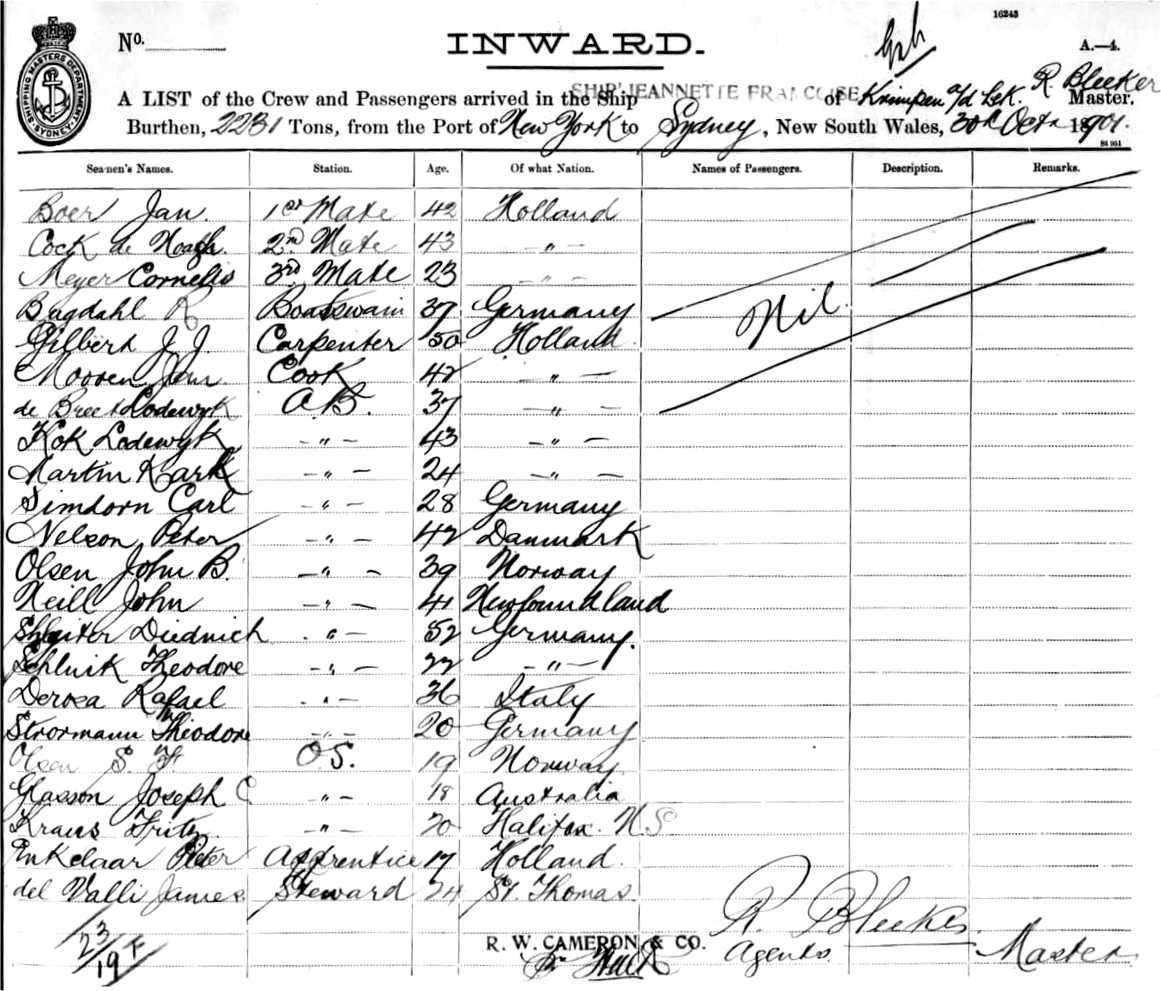 16243
INWARD.
No.
A.—4.
SHIPPING MASTERS DEPARTMENT SYDNEY
A LIST of the Crew and Passengers arrived in the Ship SHIP "JEANNETTE FRANCOISE of Krimpen a/d Lek. R Bleeker Master.
Burthen, 2231 Tons, from the Port of New York to Sydney, New South Wales, 30th Octr 1901.
Seamen's Names. Station. Age. Of what Nation. Names of Passengers. Description. Remarks.
Boer Jan. 1st Mate 42 Holland
Cock de 2nd Mate 43 — " —
Meyer Cornelis 3rd Mate 23 — " —
Bugdahl R Boatswain 37 Germany Nil.
Gilbert J. J. Carpenter 50 Holland
Mooren Jan. Cook 42 — " —
de Bree Lodewyk A.B. 37 — " —
Kok Lodewyk — " — 43 — " —
Martin Kark — " — 24 — " —
Simdorn Carl — " — 28 Germany
Nelson Peter — " — 42 Danmark
Olsen John B. — " — 39 Norway
Neill John — " — 41 Newfoundland
Diednich — " — 52 Germany.
Schluik Theodore — " — 22 — " —
Derosa Rafael " — 36 Italy
Strormann Theodore — " — 20 Germany
Olsen S. F. O.S. 19 Norway
Glasson Joseph C — " — 18 Australia
Kraus Fritz — " — 20 Halifax. N.S.
Enkelaar Pieter Apprentice 17 Holland.
del Valli James Steward 24 St. Thomas.
R. Bleeker
Master
R. W. CAMERON & CO.
Agents.
23/19 F